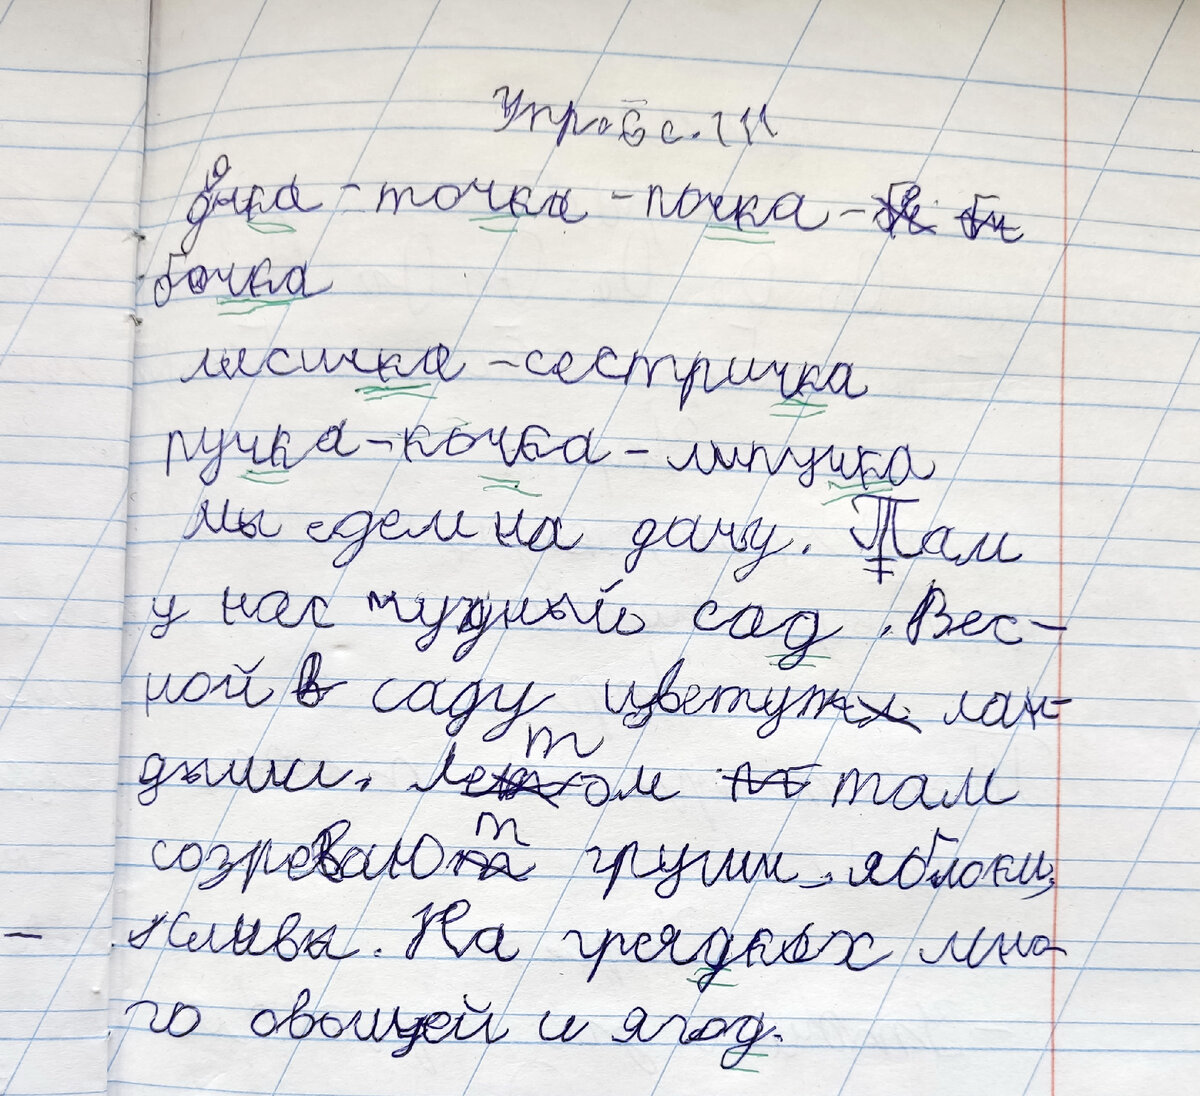 Упр. 6 с. 111
дочка - точка - почка -
бочка
лисичка - сестричка
ручка - кочка - липучка
мы едем на дачу. Там
у нас чудный сад. Вес-
ной в саду цветут лан-
дыши. Летом там
созревают груши, яблоки,
сливы. На грядках мно-
го овощей и ягод.